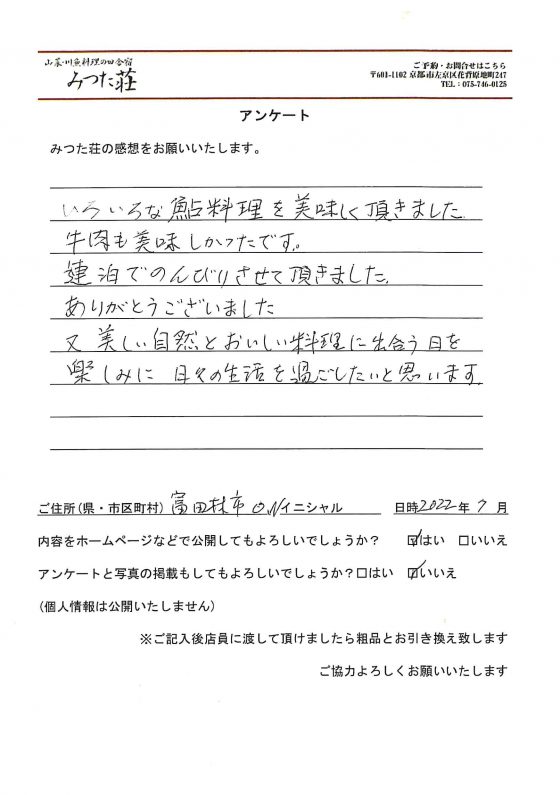 山菜・川魚料理の田舎宿
みつた荘
ご予約・お問合せはこちら
〒601-1102 京都市左京区花背原地町247
TEL：075-746-0125
アンケート
みつた荘の感想をお願いいたします。
いろいろな鮎料理を美味しく頂きました.
牛肉も美味しかったです。
連泊でのんびりさせて頂きました.
ありがとうございました
又 美しい自然とおいしい料理に出合う日を
楽しみに 日々の生活を過ごしたいと思います.
ご住所(県・市区町村) 富田林市 O.N イニシャル 日時2022年 7 月
内容をホームページなどで公開してもよろしいでしょうか？ ☑はい □いいえ
アンケートと写真の掲載もしてもよろしいでしょうか？□はい ☑いいえ
(個人情報は公開いたしません)
※ご記入後店員に渡して頂けましたら粗品とお引き換え致します
ご協力よろしくお願いいたします